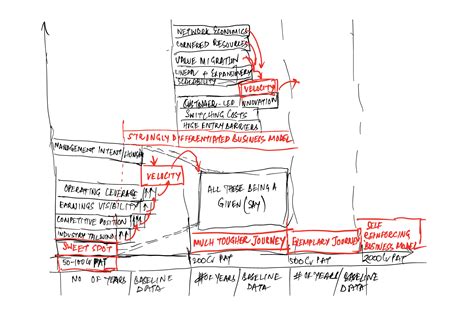 NETWORK ECONOMICS
CORNERED RESOURCES
VALUE MIGRATION
LINEAR + EXPANDING
SCALABILITY
VELOCITY
CUSTOMER-LED INNOVATION
SWITCHING COSTS
HIGH ENTRY BARRIERS
STRONGLY DIFFERENTIATED BUSINESS MODEL
MANAGEMENT INTENT
VELOCITY
OPERATING LEVERAGE
EARNINGS VISIBILITY
COMPETITIVE POSITION
INDUSTRY TAILWIND
SWEET SPOT
ALL THESE BEING A
GIVEN (SAY)
MUCH TOUGHER JOURNEY
EXEMPLARY JOURNEY
SELF
REINFORCING
BUSINESS MODEL
50-100 Cr PAT
200 Cr PAT
500 Cr PAT
2000 Cr PAT
NO OF YEARS
BASELINE
DATA
# OF YEARS
BASELINE
DATA
# OF YEARS
BASELINE
DATA